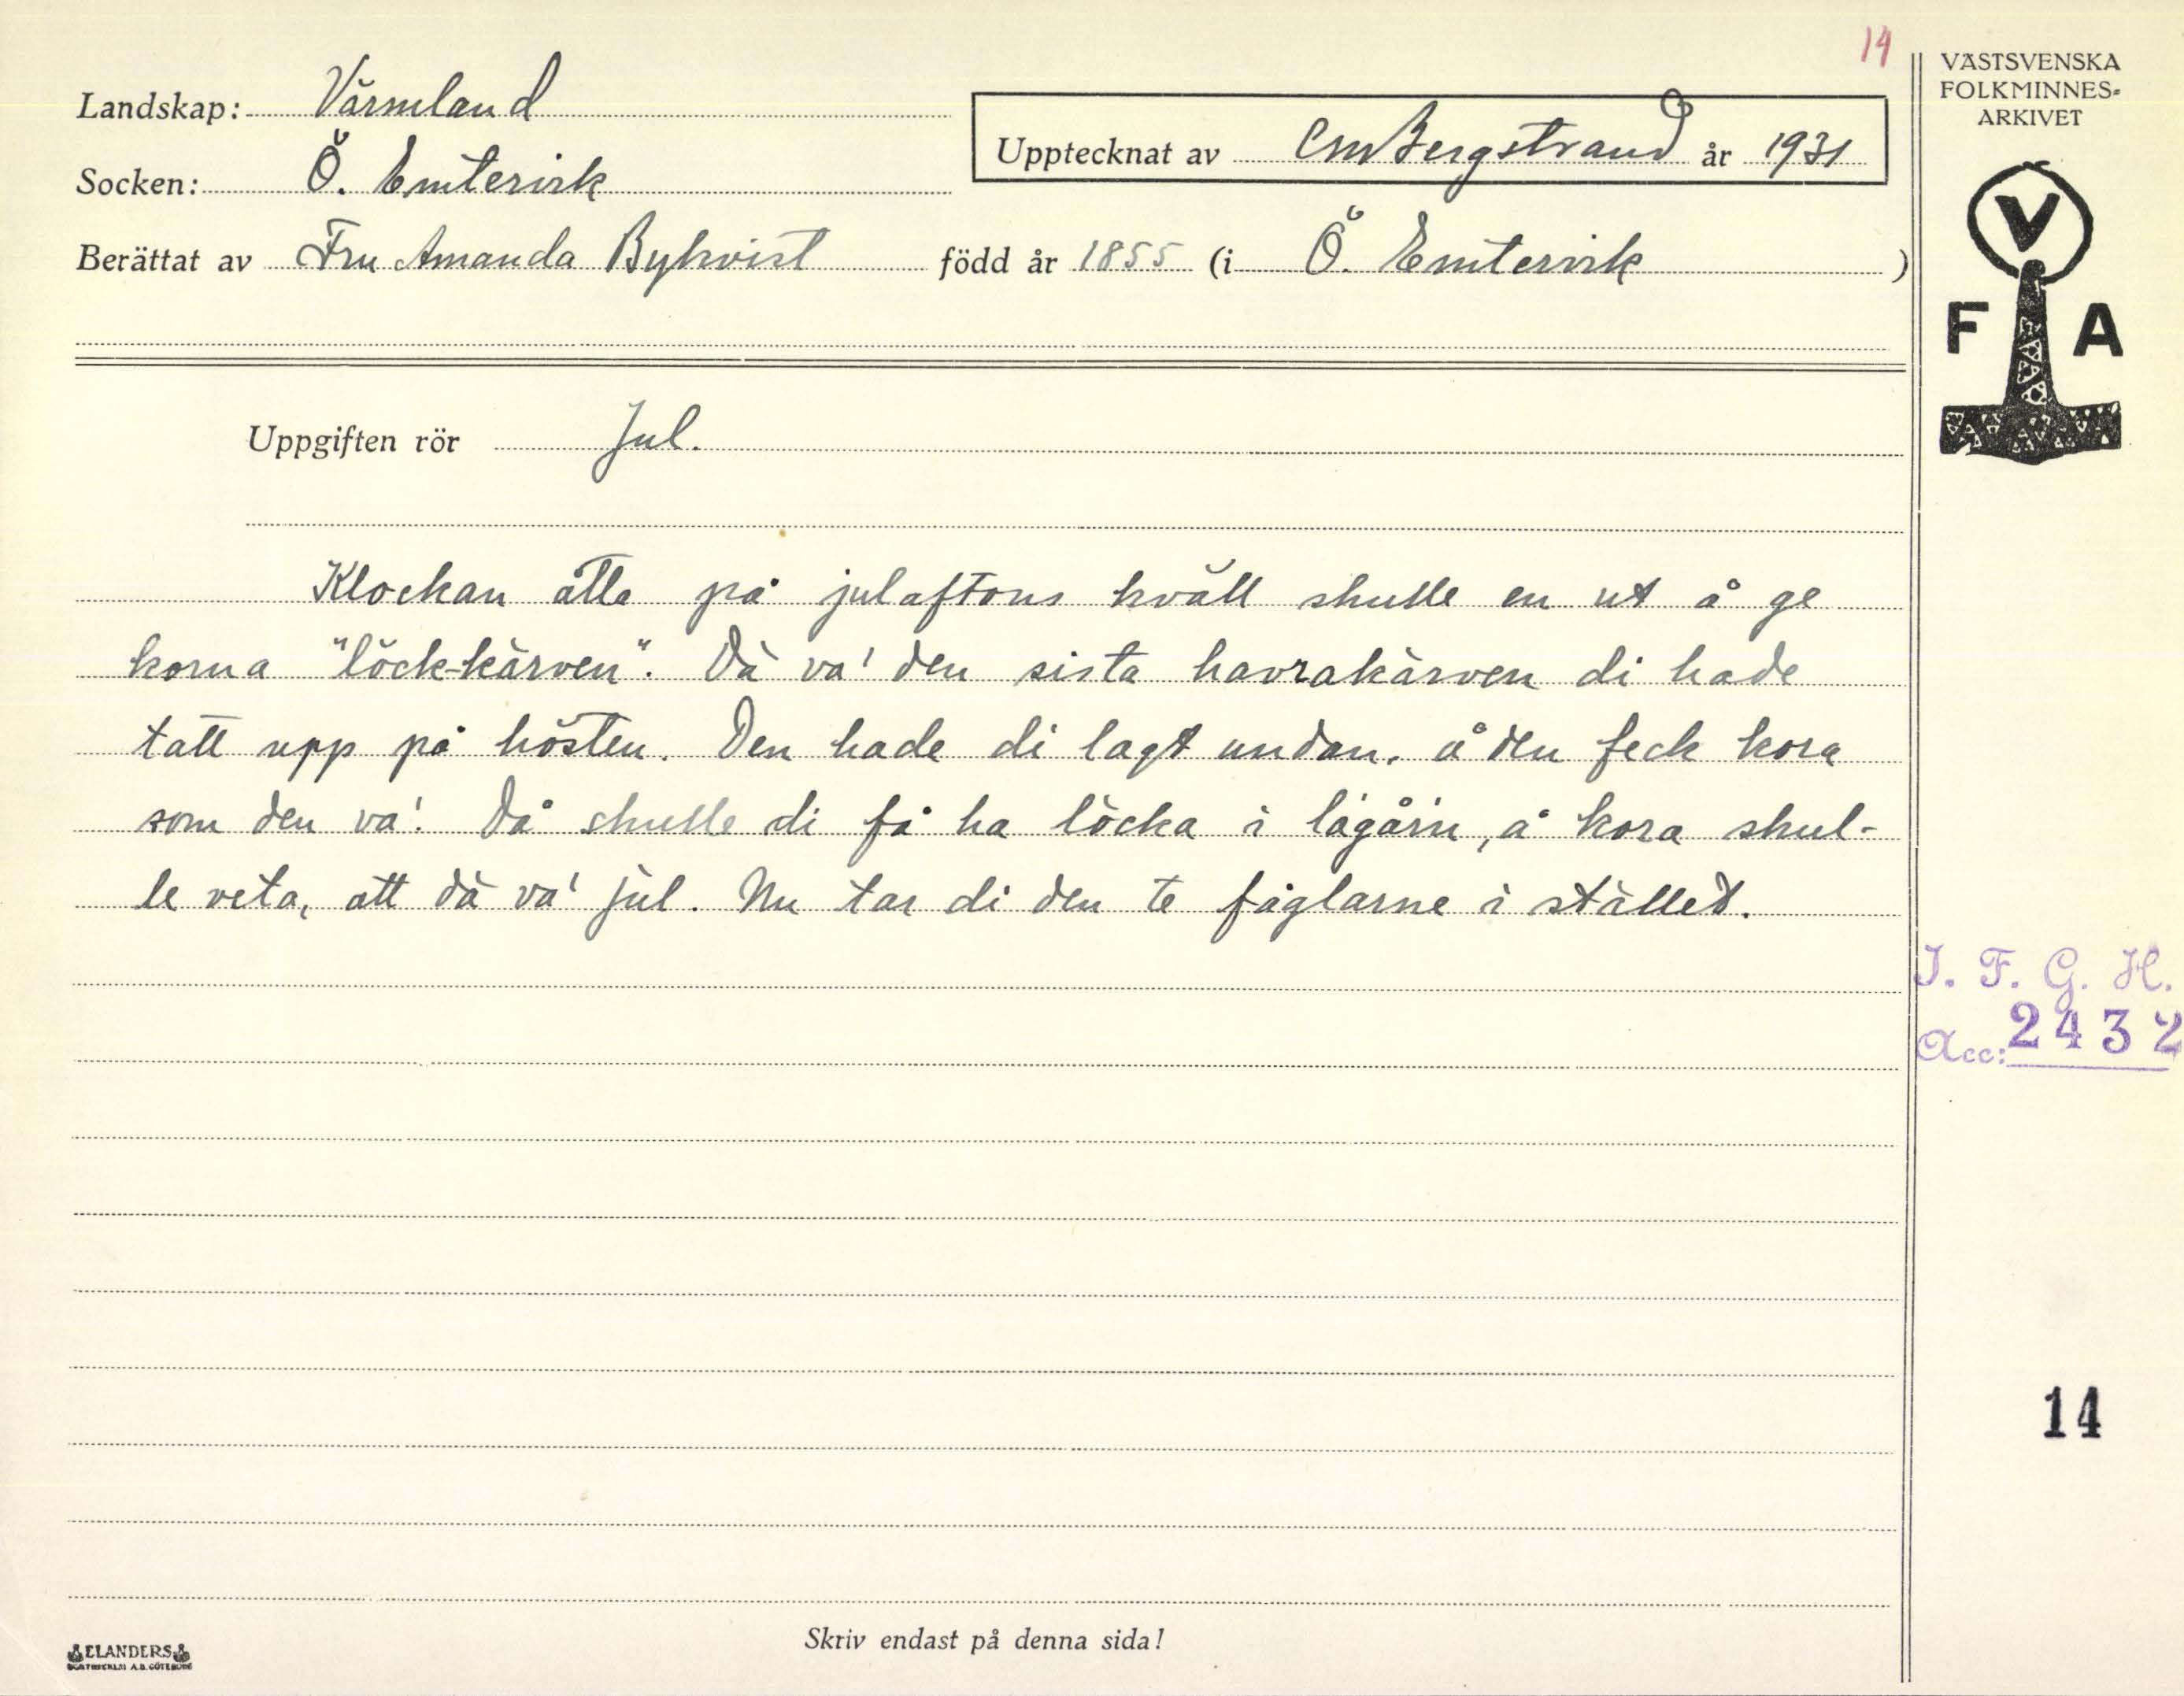 14
VÄSTSVENSKA
FOLKMINNES-
ARKIVET
Landskap: Värmland
Upptecknat av CM Bergstrand år 1931
Socken: Ö. Emtervik
Berättat av Fru Amanda Bykvist född år 1855 (i Ö. Emtervik )
V
F A
Uppgiften rör Jul.
Klockan åtta på julaftons kväll skulle en ut å ge
korna "löck-kärven". Dä va' den sista havrakärven di hade
tatt upp på hösten. Den hade di lagt undan, å den feck kora
som den va'. Då skulle di få ha löcka i lagårn, å kora skul-
le veta, att dä va' jul. Nu tar di den te fåglarne i stället.
I. F. G. H.
Acc: 2432
14
Skriv endast på denna sida!
ELANDERS